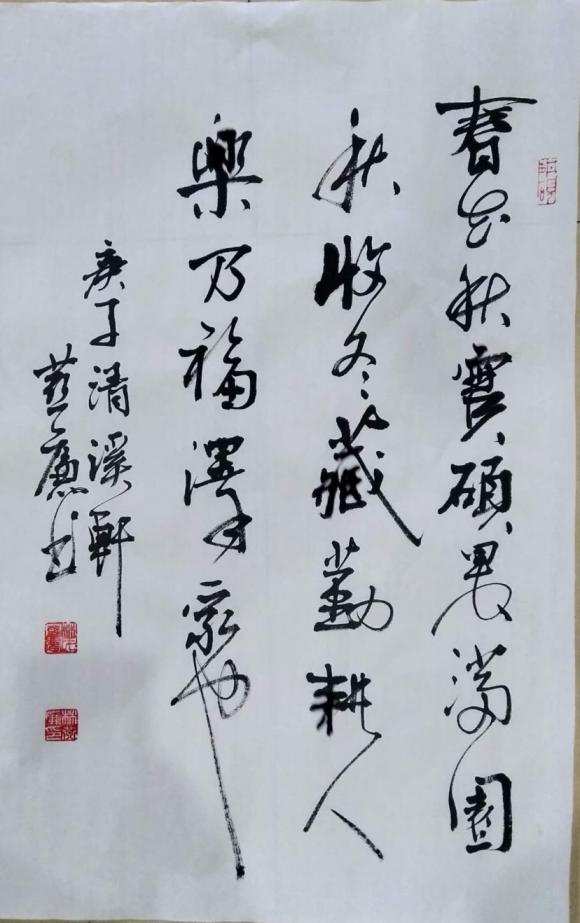 春花秋實碩果滿園
秋收冬藏勤耕人
樂乃福澤家也
庚子清溪軒
燕廉书